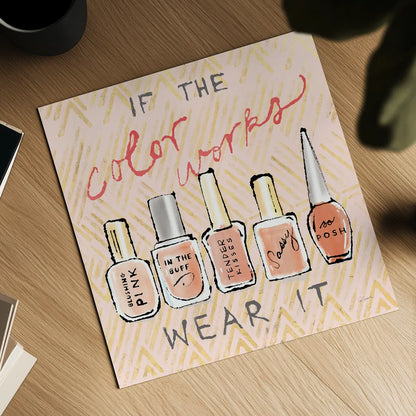 IF THE
color works
BLUSHING
PINK
IN THE
BUFF
TENDER
KISSES
Sassy
so
POSH
WEAR IT